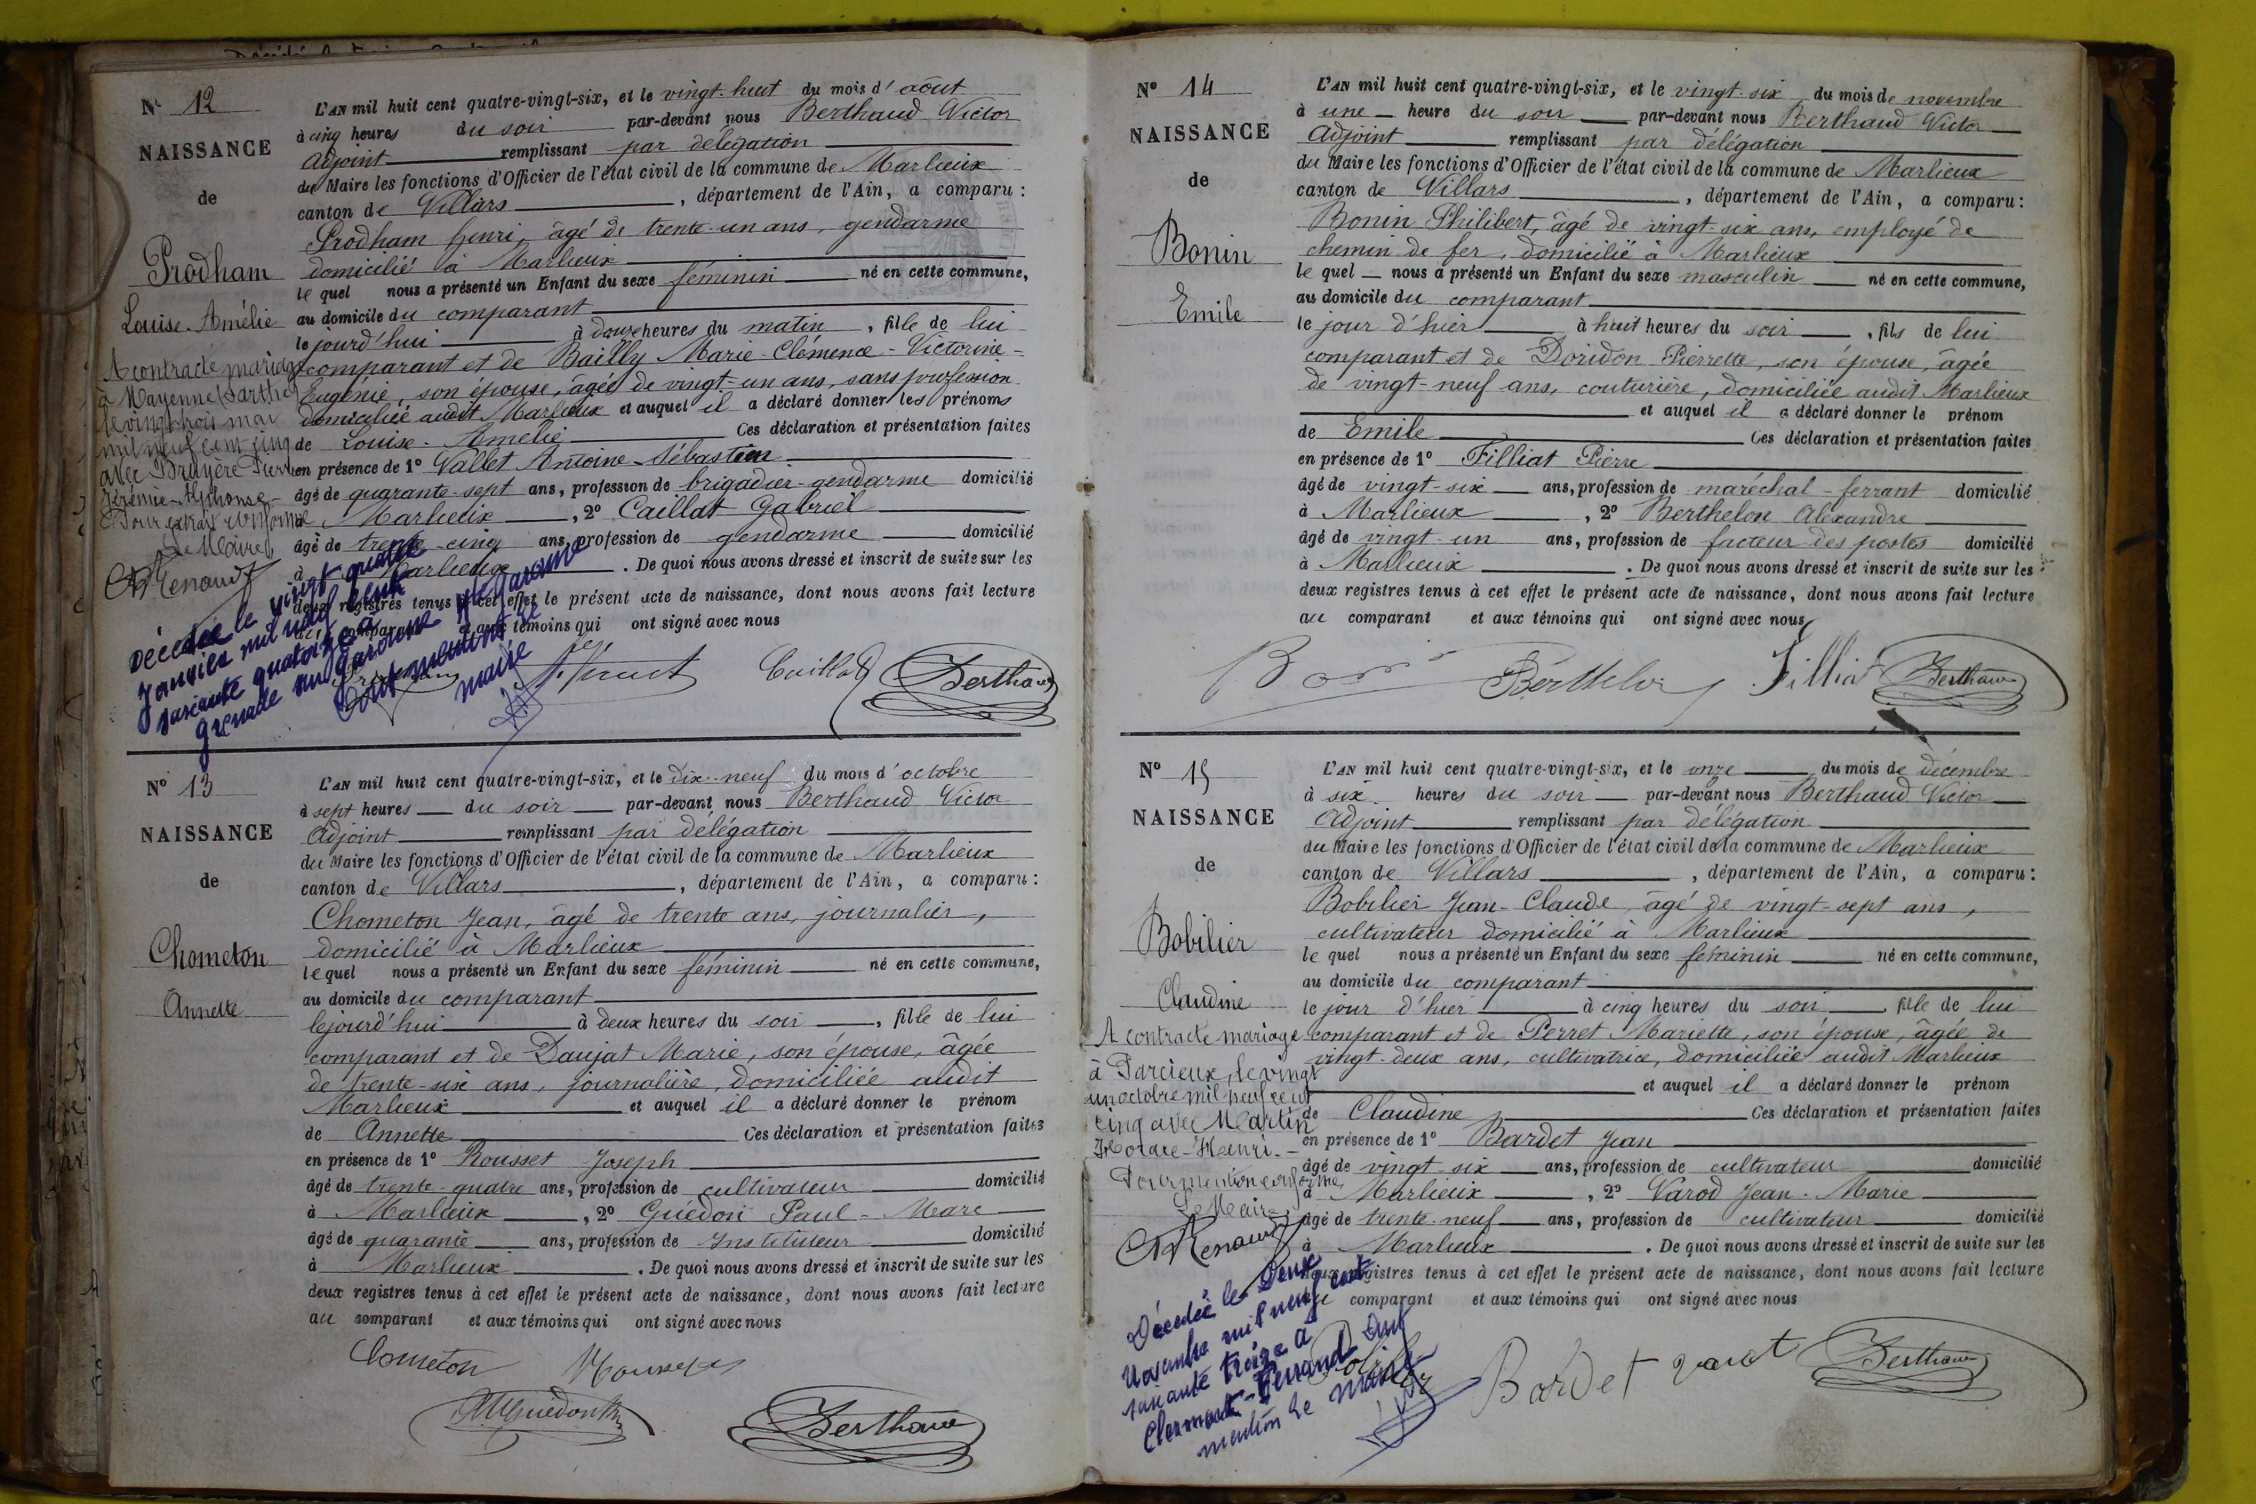 N° 12
NAISSANCE
de
Prodham
Louise-Amélie
L'AN mil huit cent quatre-vingt-six, et le vingt-huit du mois d'août
à cinq heures du soir par-devant nous Berthaud Victor
adjoint remplissant par délégation
du Maire les fonctions d'Officier de l'état civil de la commune de Marlieux
canton de Villars, département de l'Ain, a comparu :
Prodham henri, âgé de trente-un ans, gendarme
domicilié à Marlieux
le quel nous a présenté un Enfant du sexe féminin né en cette commune,
au domicile du comparant
le jourd'hui à douze heures du matin, fille de lui
comparant et de Bailly Marie-Clémence-Victorine-
Eugénie, son épouse, âgée de vingt-un ans, sans profession
domiciliée audit Marlieux et auquel il a déclaré donner les prénoms
de Louise-Amélie Ces déclaration et présentation faites
en présence de 1° Vallet Antoine-Sébastien
âgé de quarante-sept ans, profession de brigadier-gendarme domicilié
à Marlieux, 2° Caillat Gabriel
âgé de trente-cinq ans, profession de gendarme domicilié
à Marlieux. De quoi nous avons dressé et inscrit de suite sur les
deux registres tenus à cet effet le présent acte de naissance, dont nous avons fait lecture
au comparant et aux témoins qui ont signé avec nous
Caillat Berthaud
A contracté mariage
à Mayenne (Sarthe)
le vingt trois mai
mil neuf cent cinq
avec Bruyère Pierre
Jérémie-Alphonse-
Pour extrait conforme
Le Maire,
Renaud
Décédée le vingt quatre
Janvier mil neuf cent
soixante quatorze à
Grenade sur Garonne Hte Garonne
mention le
maire
N° 13
NAISSANCE
de
Chometon
Annette
L'AN mil huit cent quatre-vingt-six, et le dix-neuf du mois d'octobre
à sept heures du soir par-devant nous Berthaud Victor
Adjoint remplissant par délégation
du Maire les fonctions d'Officier de l'état civil de la commune de Marlieux
canton de Villars, département de l'Ain, a comparu :
Chometon Jean, âgé de trente ans, journalier,
domicilié à Marlieux
le quel nous a présenté un Enfant du sexe féminin né en cette commune,
au domicile du comparant
le jourd'hui à deux heures du soir, fille de lui
comparant et de Daujat Marie, son épouse, âgée
de trente-six ans, journalière, domiciliée audit
Marlieux et auquel il a déclaré donner le prénom
de Annette Ces déclaration et présentation faites
en présence de 1° Rousset Joseph
âgé de trente-quatre ans, profession de cultivateur domicilié
à Marlieux, 2° Guédon Paul-Marc
âgé de quarante ans, profession de Instituteur domicilié
à Marlieux. De quoi nous avons dressé et inscrit de suite sur les
deux registres tenus à cet effet le présent acte de naissance, dont nous avons fait lecture
au comparant et aux témoins qui ont signé avec nous
Chometon Rousset
Guédon Berthaud
N° 14
NAISSANCE
de
Bonin
Emile
L'AN mil huit cent quatre-vingt-six, et le vingt-six du mois de novembre
à une heure du soir par-devant nous Berthaud Victor
Adjoint remplissant par délégation
du Maire les fonctions d'Officier de l'état civil de la commune de Marlieux
canton de Villars, département de l'Ain, a comparu :
Bonin Philibert, âgé de vingt-six ans, employé de
chemin de fer, domicilié à Marlieux
le quel nous a présenté un Enfant du sexe masculin né en cette commune,
au domicile du comparant
le jour d'hier à huit heures du soir, fils de lui
comparant et de Doridon Pierrette, son épouse, âgée
de vingt-neuf ans, couturière, domiciliée audit Marlieux
et auquel il a déclaré donner le prénom
de Emile Ces déclaration et présentation faites
en présence de 1° Filliat Pierre
âgé de vingt-six ans, profession de maréchal-ferrant domicilié
à Marlieux, 2° Berthelon Alexandre
âgé de vingt-un ans, profession de facteur des postes domicilié
à Marlieux. De quoi nous avons dressé et inscrit de suite sur les
deux registres tenus à cet effet le présent acte de naissance, dont nous avons fait lecture
au comparant et aux témoins qui ont signé avec nous
Berthelon Filliat Berthaud
N° 15
NAISSANCE
de
Bobilier
Claudine
L'AN mil huit cent quatre-vingt-six, et le onze du mois de décembre
à six heures du soir par-devant nous Berthaud Victor
Adjoint remplissant par délégation
du Maire les fonctions d'Officier de l'état civil de la commune de Marlieux
canton de Villars, département de l'Ain, a comparu :
Bobilier Jean-Claude, âgé de vingt-sept ans,
cultivateur domicilié à Marlieux
le quel nous a présenté un Enfant du sexe féminin né en cette commune,
au domicile du comparant
le jour d'hier à cinq heures du soir, fille de lui
comparant et de Perret Mariette, son épouse, âgée de
vingt-deux ans, cultivatrice, domiciliée audit Marlieux
et auquel il a déclaré donner le prénom
de Claudine Ces déclaration et présentation faites
en présence de 1° Bardet Jean
âgé de vingt-six ans, profession de cultivateur domicilié
à Marlieux, 2° Varod Jean-Marie
âgé de trente-neuf ans, profession de cultivateur domicilié
à Marlieux. De quoi nous avons dressé et inscrit de suite sur les
deux registres tenus à cet effet le présent acte de naissance, dont nous avons fait lecture
au comparant et aux témoins qui ont signé avec nous
Bobilier Bardet varot Berthaud
A contracté mariage
à Parcieux, le vingt
un octobre mil neuf cent
cinq avec Martin
Horace-Henri.-
Pour mention conforme,
Le Maire,
Renaud
Décédée le Deux
Novembre mil neuf cent
soixante treize à
Clermont-Ferrand
mention le maire